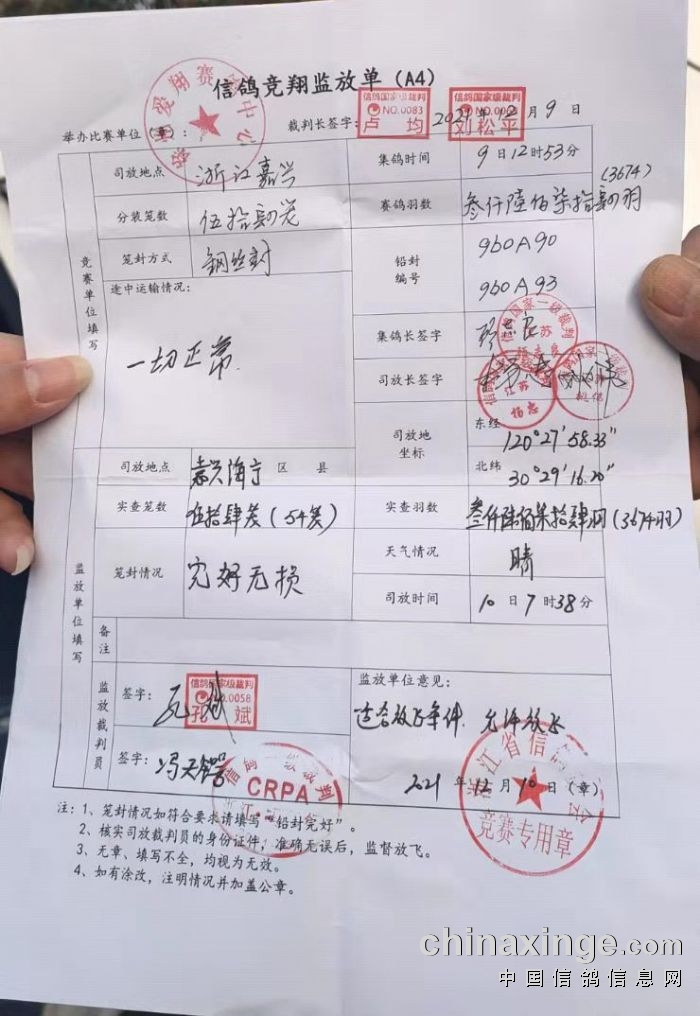 信鸽竞翔监放单（A4）
举办比赛单位（章）： 裁判长签字： 2021年12月9日
信鸽国家级裁判 NO.0083 卢均
信鸽国家级裁判 刘松平
竞赛单位填写
司放地点 浙江嘉兴 集鸽时间 9日12时53分
(3674)
分装笼数 伍拾肆笼 赛鸽羽数 叁仟陆佰柒拾肆羽
笼封方式 钢丝封 铅封编号 960A90
960A93
途中运输情况：
一切正常.
集鸽长签字
信鸽国家一级裁判
司放长签字
江苏
司放地坐标 东经 120°27′58.33″
北纬 30°29′16.20″
监放单位填写
司放地点 嘉兴海宁 区 县
实查笼数 伍拾肆笼(54笼) 实查羽数 叁仟陆佰柒拾肆羽(3674羽)
笼封情况 完好无损 天气情况 晴
司放时间 10日7时38分
备注
监放裁判员
签字：
信鸽国家级裁判 NO.0058 孔斌
监放单位意见：
适合放飞条件, 允许放飞
签字：
CRPA
2021年12月10日（章）
浙江省信鸽协会
竞赛专用章
注：1、笼封情况如符合要求请填写“铅封完好”。
2、核实司放裁判员的身份证件，准确无误后，监督放飞。
3、无章、填写不全，均视为无效。
4、如有涂改，注明情况并加盖公章。
chinaxinge.com
中国信鸽信息网